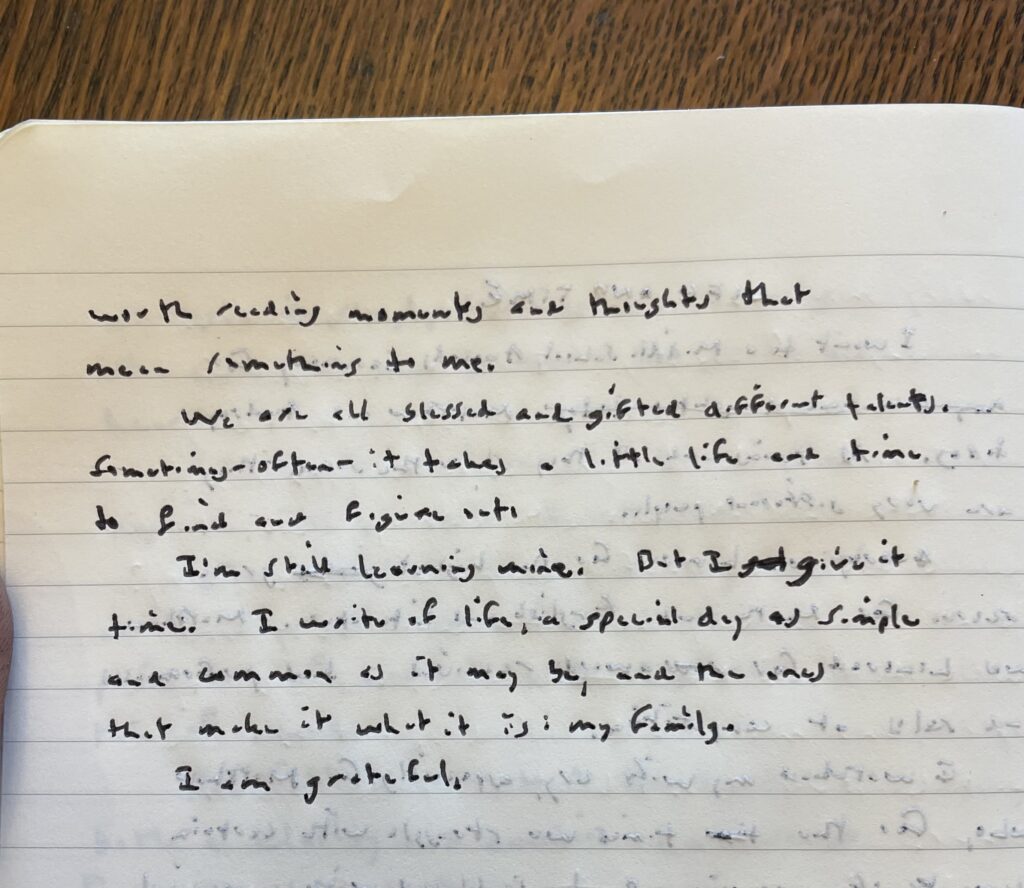 worth reading moments and thoughts that
mean something to me.
We are all blessed and gifted different talents.
Sometimes-often-it takes a little life and time
to find and figure out.
I'm still learning mine. But I give it
time. I write of life, a special day as simple
and common as it may be, and the ones
that make it what it is: my family.
I am grateful.